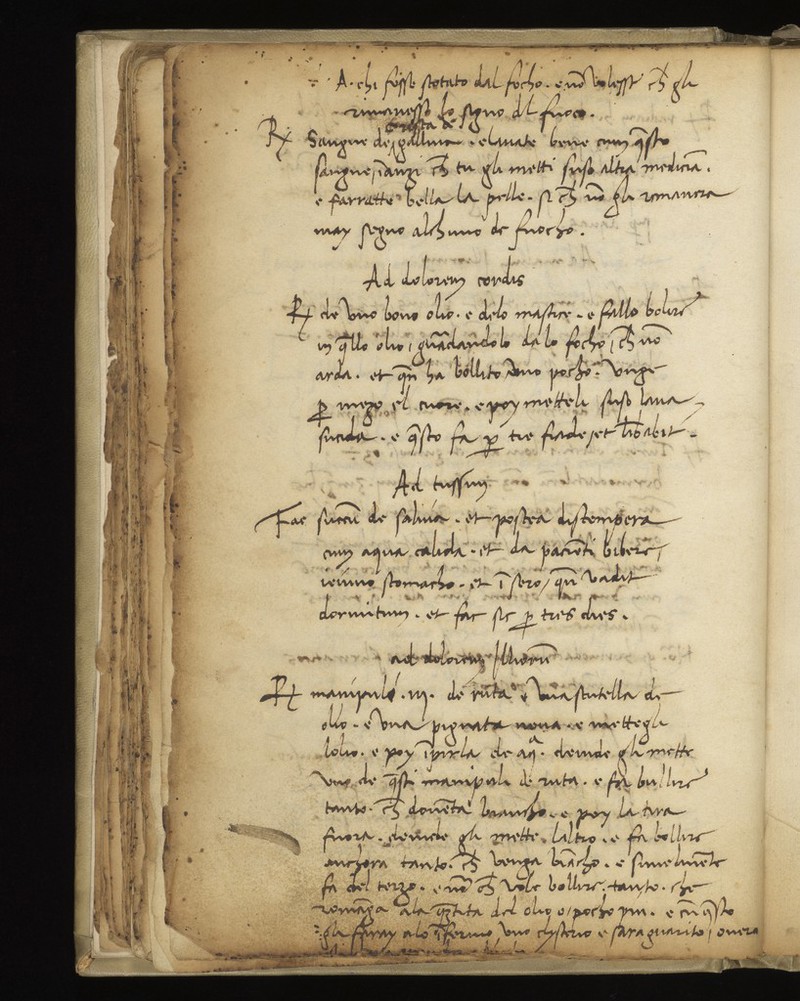 A chi fosse scotato dal focho. e nō volesse ch̄ gli
rimanesse lo signo del fuoco.
cresta de
Rx Sangue de gallina. e lavate bene cum q̄sto
sangue, īanzi ch̄ tu gli metti suso altra medicīa.
e farratte bella la pelle. si ch̄ nō gli romanera
may segno alchuno de fuocho.
Ad dolorem cordis
Rx de uno bono olio. e delo mastice. e fallo bolire
in q̄llo olio, guārdandolo da lo focho, ch̄ nō
arda. et qn̄ ha bollito uno pocho. unge
p̄ mezo el cuore. e poy metteli suso lana
sucida. e q̄sto fa p̄ tre fiade, et lib̄abit.
Ad tussim
Fac succū de salvia. et postea distempera
cum aqua calida. et da paciēti bibere,
ieiuno stomacho. et ī sero, qn̄ vadit
dormitum. et fac sic p̄ tres dies.
ad dolorem iliorū
Rx manipuli .iij. de ruta e una scutella de
ollo. e una pignata nova. e mettegli
lolio. e poy īpirla de aq̄. deinde gli mette
uno de q̄sti manipuli de ruta. e fa bullire
tanto. ch̄ doventa biancho. e poy la tira
fuora. deinde gli mette laltro. e fa bollire
anchora tanto. ch̄ venga biācho. e simelmēte
fa del terzo. e nō ch̄ vole bollire. tanto. che
romāga ala q̄ntita del olio o, pocho piu. e cū q̄sto
gli faray alo īfermo uno clysterio e sara guarito, overo